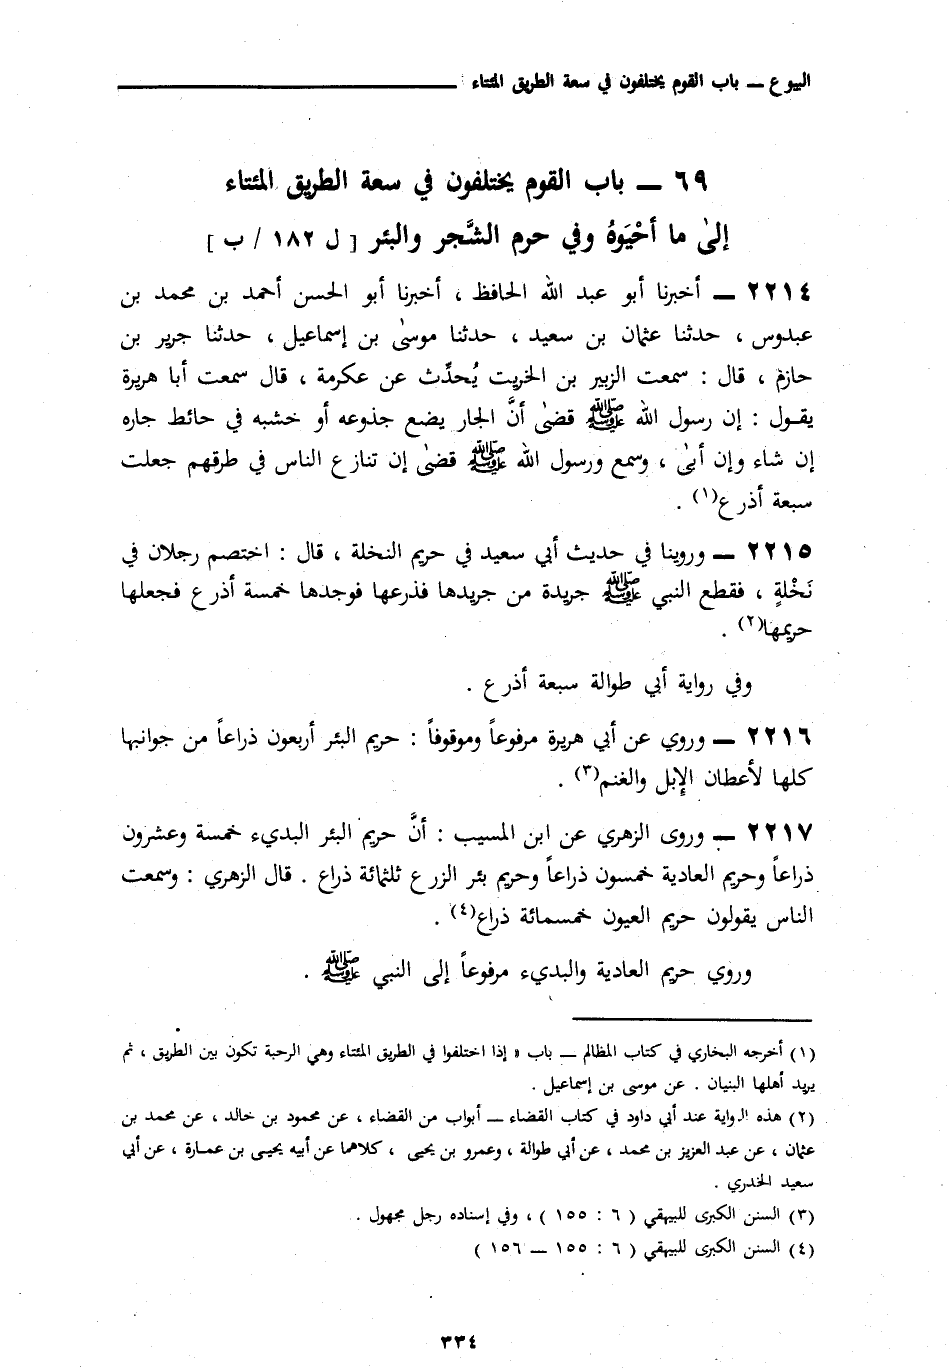 البيوع — باب القوم يختلفون في سعة الطريق المئتاء
٦٩ — باب القوم يختلفون في سعة الطريق المئتاء
إلىٰ ما أحْيَوهُ وفي حرم الشَّجر والبئر [ ل ١٨٢ / ب ]
٢٢١٤ — أخبرنا أبو عبد الله الحافظ ، أخبرنا أبو الحسن أحمد بن محمد بن
عبدوس ، حدثنا عثمان بن سعيد ، حدثنا موسىٰ بن إسماعيل ، حدثنا جرير بن
حازم ، قال : سمعت الزبير بن الخريت يُحدِّث عن عكرمة ، قال سمعت أبا هريرة
يقول : إن رسول الله ﷺ قضىٰ أنَّ الجار يضع جذوعه أو خشبه في حائط جاره
إن شاء وإن أبىٰ ، وسمع ورسول الله ﷺ قضىٰ إن تنازع الناس في طرقهم جعلت
سبعة أذرع(١) .
٢٢١٥ — وروينا في حديث أبي سعيد في حريم النخلة ، قال : اختصم رجلان في
نَخْلةٍ ، فقطع النبي ﷺ جريدة من جريدها فذرعها فوجدها خمسة أذرع فجعلها
حريمها(٢) .
وفي رواية أبي طوالة سبعة أذرع .
٢٢١٦ — وروي عن أبي هريرة مرفوعاً وموقوفاً : حريم البئر أربعون ذراعاً من جوانبها
كلها لأعطان الإبل والغنم(٣) .
٢٢١٧ — وروى الزهري عن ابن المسيب : أنَّ حريم البئر البديء خمسة وعشرون
ذراعاً وحريم العادية خمسون ذراعاً وحريم بئر الزرع ثلثمائة ذراع . قال الزهري : وسمعت
الناس يقولون حريم العيون خمسمائة ذراع(٤) .
وروي حريم العادية والبديء مرفوعاً إلى النبي ﷺ .
(١) أخرجه البخاري في كتاب المظالم — باب « إذا اختلفوا في الطريق المئتاء وهي الرحبة تكون بين الطريق ، ثم
يريد أهلها البنيان . عن موسى بن إسماعيل .
(٢) هذه الرواية عند أبي داود في كتاب القضاء — أبواب من القضاء ، عن محمود بن خالد ، عن محمد بن
عثمان ، عن عبد العزيز بن محمد ، عن أبي طوالة ، وعمرو بن يحيى ، كلاهما عن أبيه يحيى بن عمارة ، عن أبي
سعيد الخدري .
(٣) السنن الكبرى للبيهقي ( ٦ : ١٥٥ ) ، وفي إسناده رجل مجهول .
(٤) السنن الكبرى للبيهقي ( ٦ : ١٥٥ — ١٥٦ )
٣٣٤